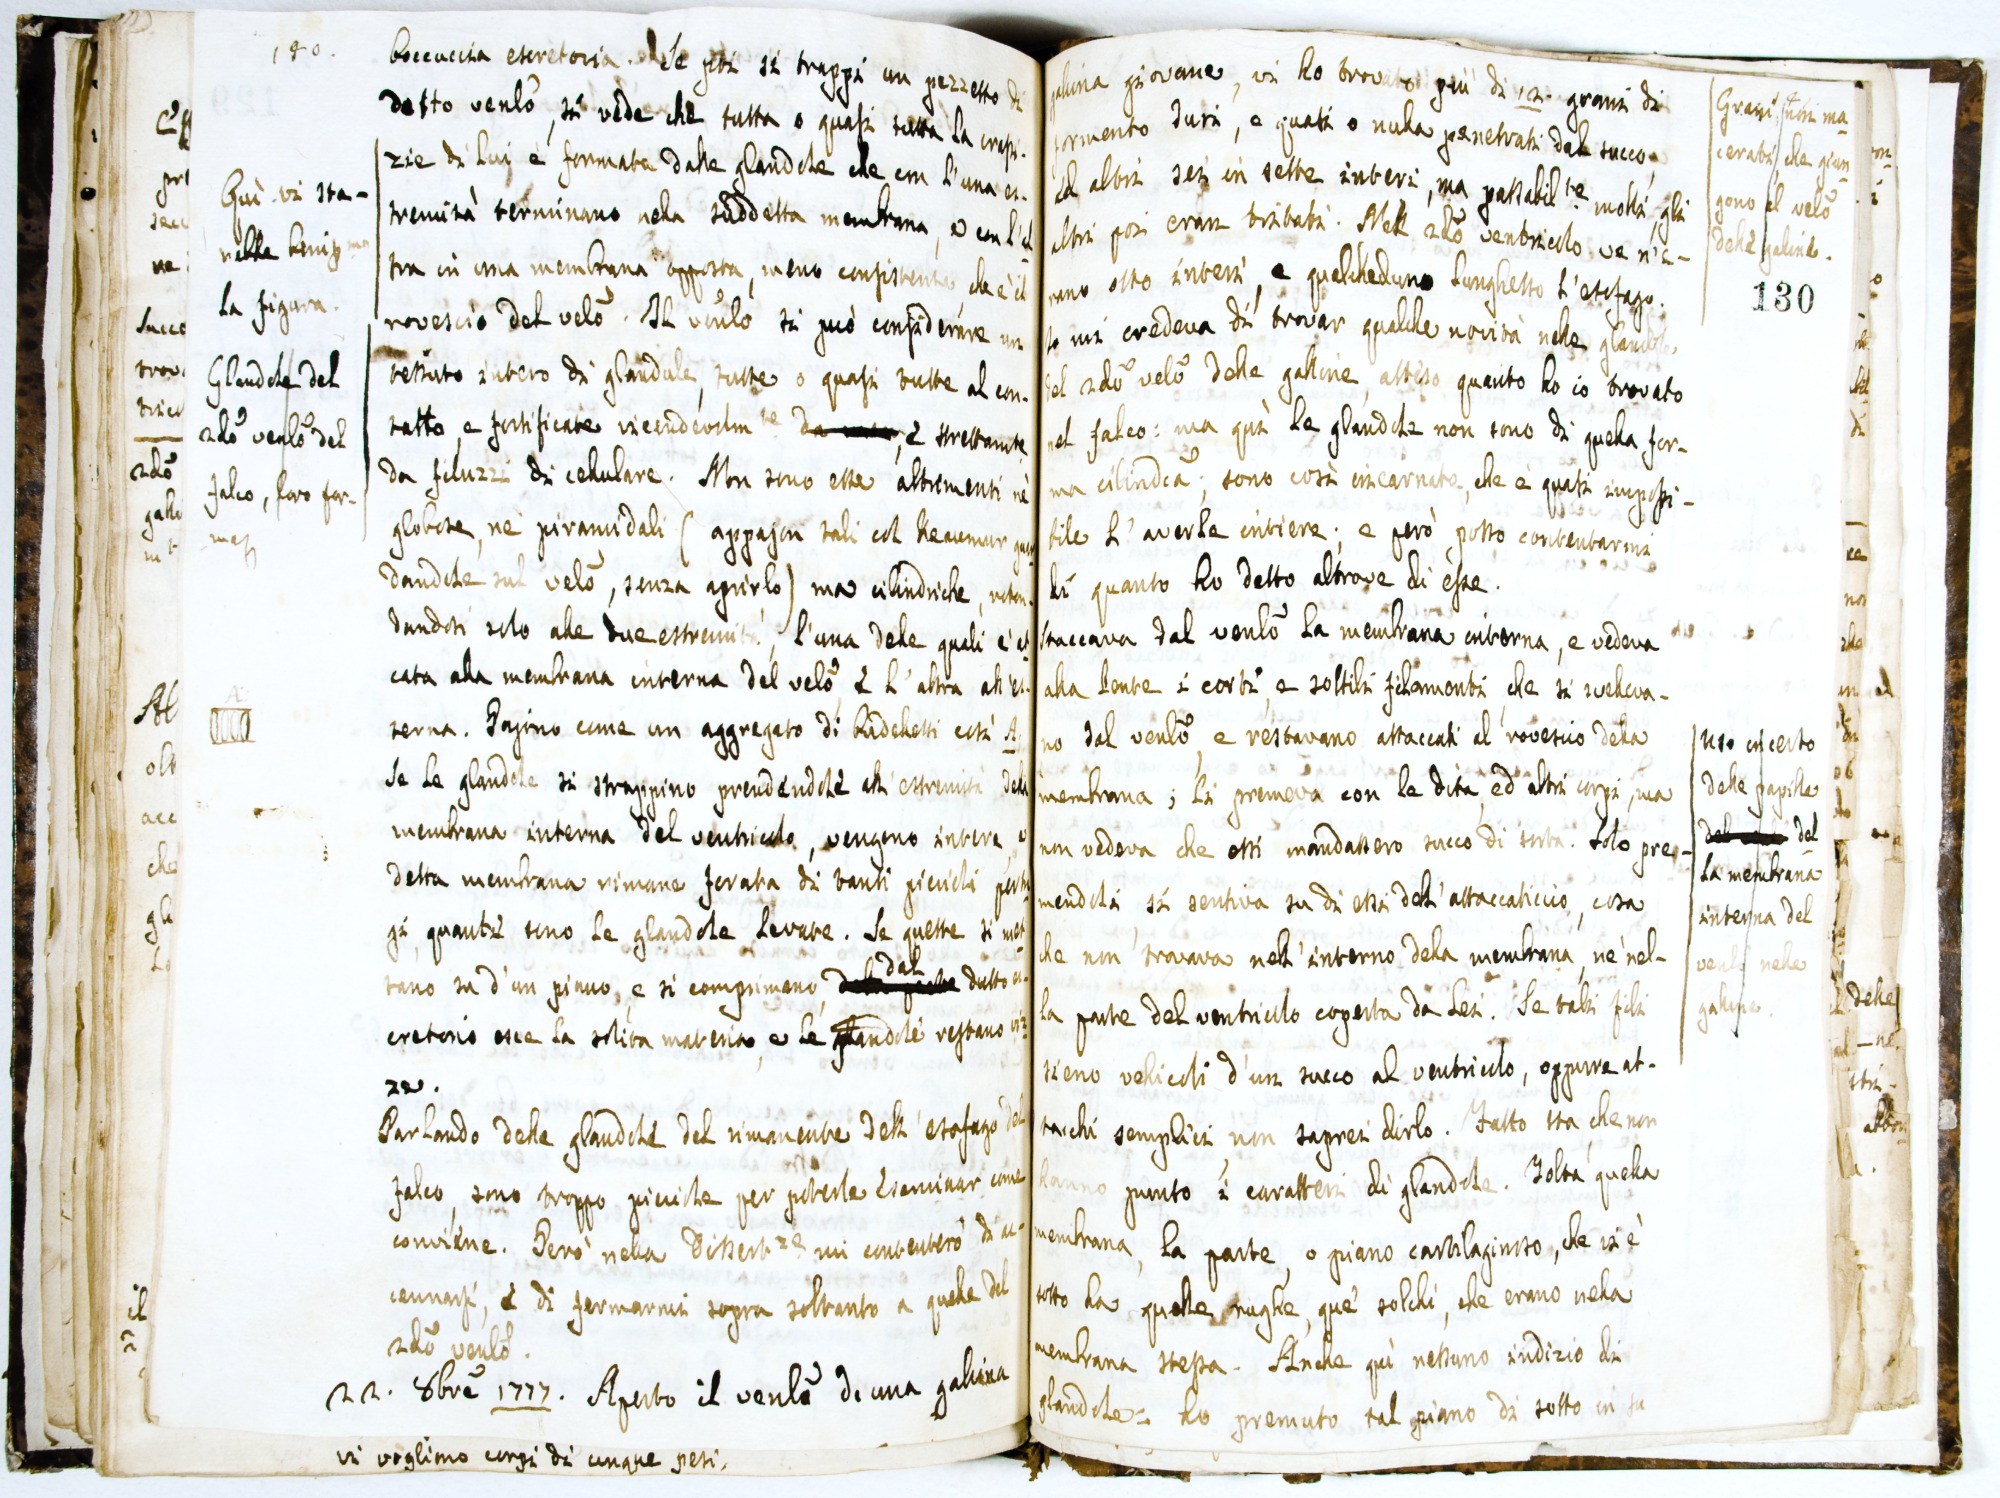 180.
boccuccia escretoria. Se poi si strappi un pezzetto di
detto venlõ, si vede che tutta o quasi tutta la crassi-
zie di lui è formata dalle glandole che con l'una es-
tremità terminano nella suddetta membrana, e con l'al
tra in una membrana opposta, meno consistente, che è il
rovescio del velõ. Il venlõ si può considerare un
tessuto intero di glandule, tutte o quasi tutte al con-
tatto, e fortificate vicendevolm.te, e strettamte
da filuzzi di cellulare. Non sono esse altrimenti nè
globose, nè piramidali (appajon tali col Reaumur guar
dandole sul velõ, senza aprirlo) ma cilindriche, roton-
dandosi solo alle due estremità, l'una delle quali è at
cata alla membrana interna del velõ, e l'altra all'es-
terna. Pajono come un aggregato di budelletti così A.
Se le glandole si strappino prendendole all'estremità della
membrana interna del ventricolo, vengono intere, e
detta membrana rimane forata di tanti piccioli pertu
gi, quanti sono le glandole levate. Se queste si met
tano su d'un piano, e si comprimano, dal dutto es-
cretorio esce la solita materia, e le glandole restano viz
ze.
Parlando delle glandole del rimanente dell'esofago del
falco, sono troppo picciole per poterle esaminar come
conviene. Però nella Dissert.ze mi contenterò di ac-
cennarsi, e di fermarmi sopra soltanto a quelle del
2dõ venlõ.
22. 8brẽ 1777. Aperto il venlõ di una gallina
vi vogliono corpi di cinque peri.
Qui vi sta-
rebbe benissimo
la figura.
Glandole del
2dõ venlõ del
falco, loro for-
ma
A
gallina giovane, vi ho trovato più di 12. grani di
formento duri, e quasi o nulla penetrati dal succo,
ed altri sei in sette interi, ma passabil.te molli, gli
altri poi eran tritati. Nel 2dõ ventricolo ve n'e-
rano otto interi, e qualcheduno lunghesso l'esofago.
Io mi credeva di trovar qualche novità nelle glandole
del 2dõ velõ delle galline, atteso quanto ho io trovato
nel falco: ma quì le glandole non sono di quella for-
ma cilindca; sono così incarnate, che è quasi impossi-
bile l'averle intiere; e però posso contentarmi
di quanto ho detto altrove di esse.
Staccava dal venlõ la membrana interna, e vedeva
alla lente i corti, e sottili filamenti, che si svelleva-
no dal venlõ, e restavano attaccati al rovescio della
membrana; li premeva con le dita, ed altri corpi, ma
non vedeva che essi mandassero succo di sorta. Solo pre-
mendoli, si sentiva su di essi dell'attaccaticcio, cosa
che non trovava nell'interno della membrana, nè nel-
la parte del ventricolo coperta da lei. Se tali fili
sieno vehicoli d'un succo al ventricolo, oppure at-
tacchi semplici non saprei dirlo. Fatto sta, che non
hanno punto i caratteri di glandole. Tolta quella
membrana, la parte, o piano cartilaginoso, che vi è
sotto ha quelle rughe, que' solchi, che erano nella
membrana stessa. Anche qui nessuno indizio di
glandole: ho premuto tal piano di sotto in su
Grani interi ma
cerati, che giun
gono al velõ
delle galline.
130
Uso incerto
delle papille
del
la membrana
interna del
venlõ nelle
galline.